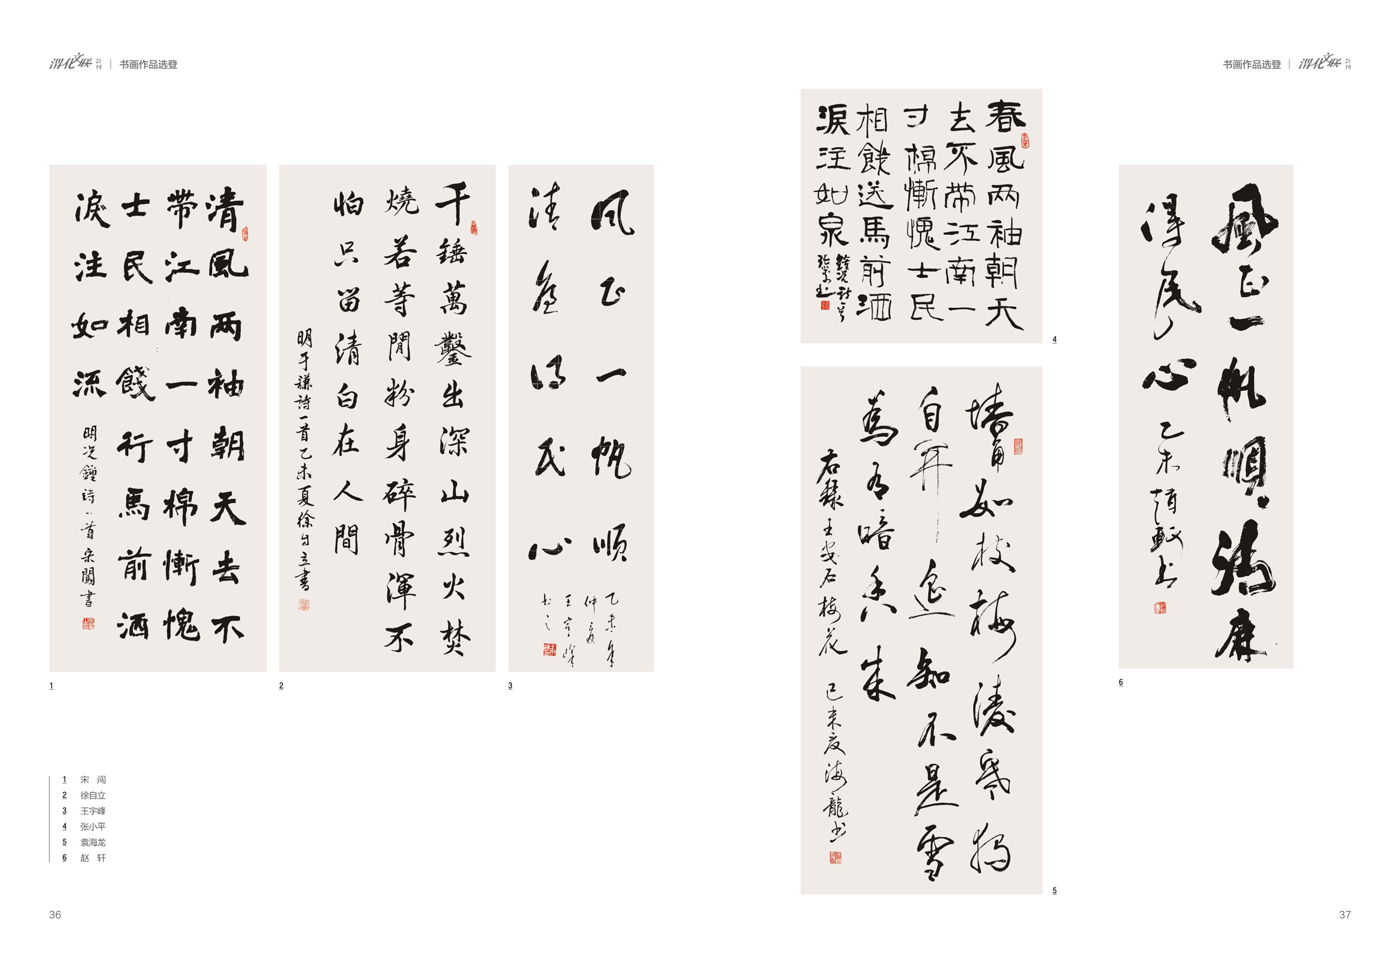 渭化文联 会刊 | 书画作品选登
清風两袖朝天去不
帶江南一寸棉慚愧
士民相餞行馬前洒
淚注如流
明况鐘詩一首宋闖書
1
千錘萬鑿出深山烈火焚
燒若等閒粉身碎骨渾不
怕只留清白在人間
明于謙詩一首乙未夏徐自立書
2
风正一帆顺
清廉得民心
乙未年
仲夏
王宇峰
书之
3
1 宋 闯
2 徐自立
3 王宇峰
4 张小平
5 袁海龙
6 赵 轩
36
书画作品选登 | 渭化文联 会刊
春風两袖朝天
去不带江南一
寸棉慚愧士民
相餞送馬前洒
淚注如泉
4
墙角数枝梅凌寒独
自开遥知不是雪
為有暗香来
右録王安石梅花
乙未夏海龍书
5
風正一帆順清廉
得民心
乙未趙軒书
6
37